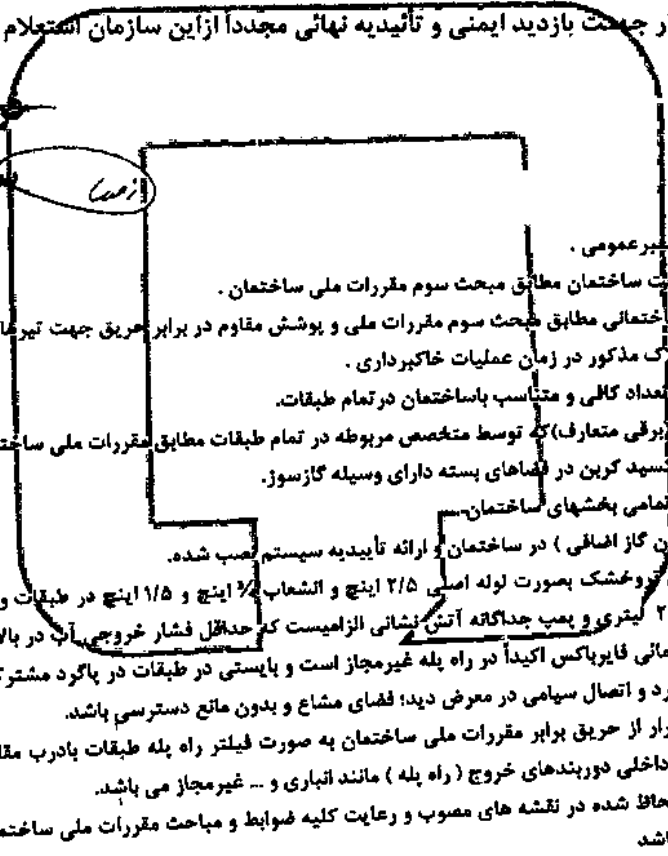 جهت بازدید ایمنی و تأئیدیه نهائی مجدداً ازاین سازمان استعلام
عمومی .
ساختمان مطابق مبحث سوم مقررات ملی ساختمان .
مطابق مبحث سوم مقررات ملی و پوشش مقاوم در برابر حریق جهت
مذکور در زمان عملیات خاکبرداری .
تعداد کافی و متناسب باساختمان درتمام طبقات.
برقی متعارف)که توسط متخصص مربوطه در تمام طبقات مطابق مقررات ملی
کربن در فضاهای بسته دارای وسیله گازسوز.
تمامی بخشهای ساختمان
گاز اضافی ) در ساختمان و ارائه تأییدیه سیستم نصب شده.
بصورت لوله اصلی ۲/۵ اینچ و انشعاب ¾ اینچ و ۱/۵ اینچ در طبقات و
لیتری و پمپ جداگانه آتش نشانی الزامیست که حداقل فشار خروجی آب در
فایرباکس اکیداً در راه پله غیرمجاز است و بایستی در طبقات در پاگرد
و اتصال سیامی در معرض دید؛ فضای مشاع و بدون مانع دسترسی باشد.
از حریق برابر مقررات ملی ساختمان به صورت فیلتر راه پله طبقات بادرب
داخلی دوربندهای خروج ( راه پله ) مانند انباری و ... غیرمجاز می باشد.
شده در نقشه های مصوب و رعایت کلیه ضوابط و مباحث مقررات ملی